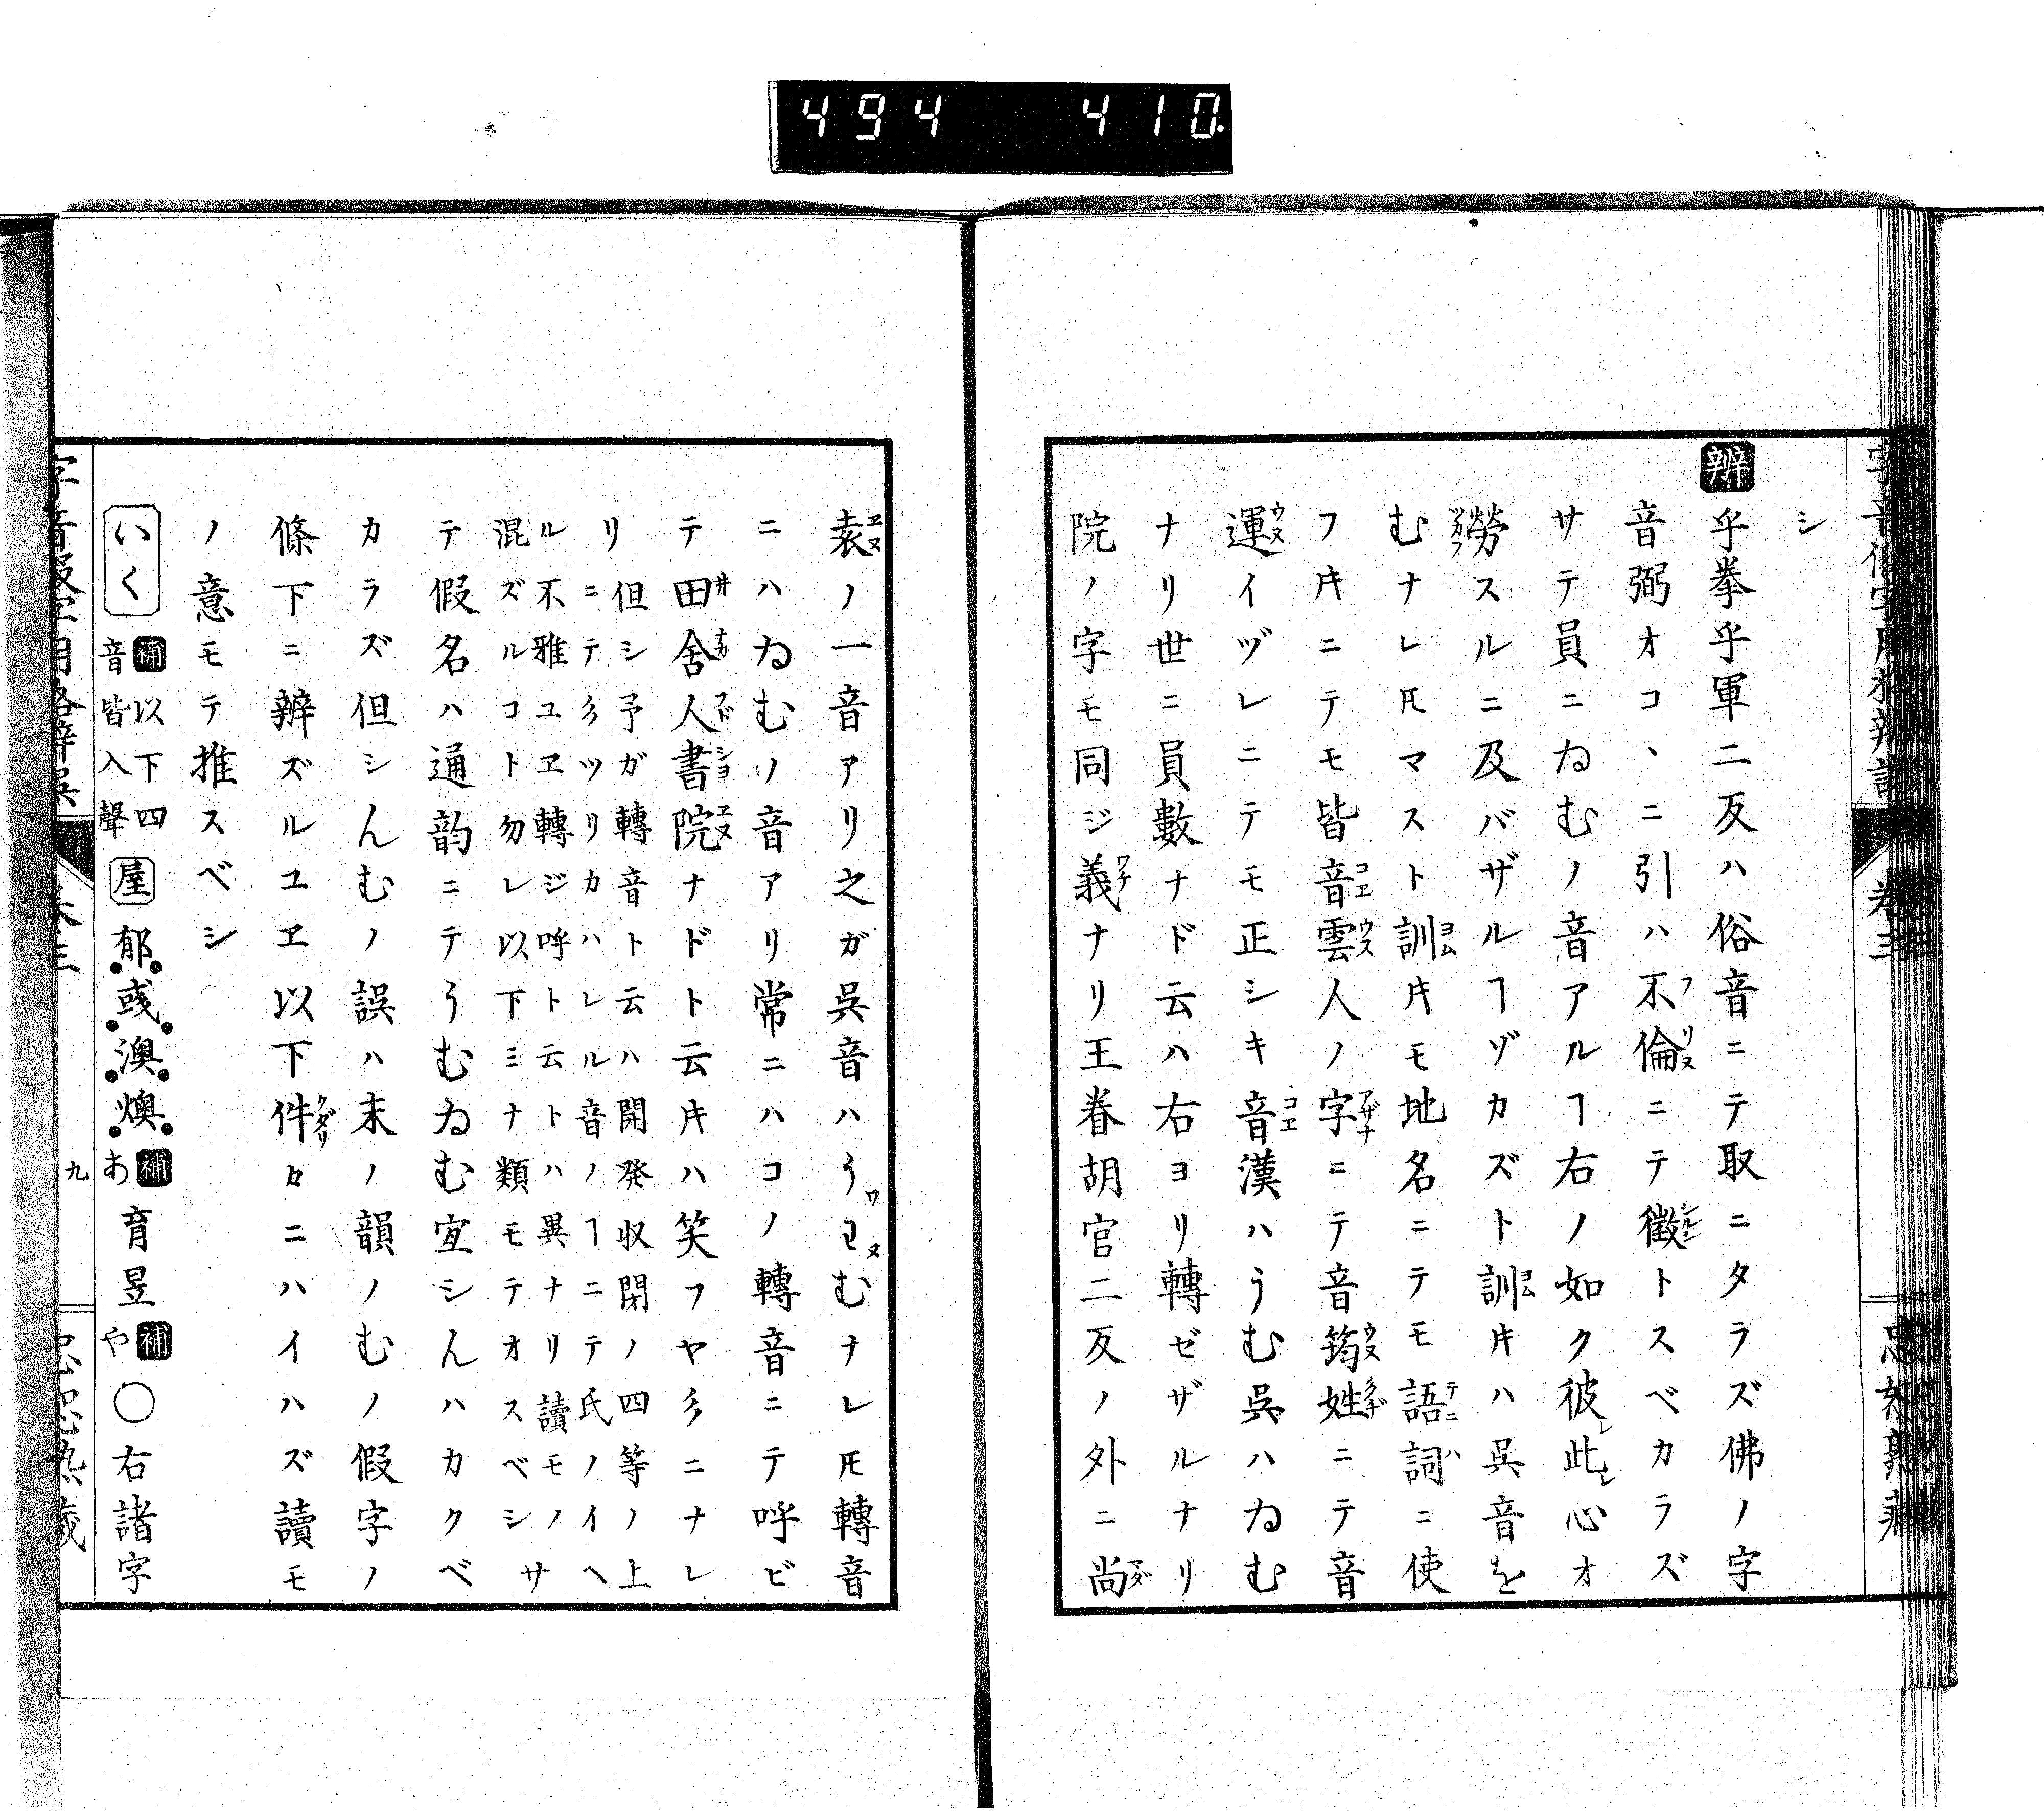 494 410
シ
辨 乎拳乎軍二反ハ俗音ニテ取ニタラズ佛ノ字
音弼オコヽニ引ハ不倫ニテ徴トスベカラズ
サテ員ニゐむノ音アルヿ右ノ如ク彼此心オ
勞スルニ及バザルヿヅカズト訓キハ呉音を
むナレ𪜈マスト訓キモ地名ニテモ語詞ニ使
フキニテモ皆音雲人ノ字ニテ音筠姓ニテ音
運イヅレニテモ正シキ音漢ハうむ呉ハゐむ
ナリ世ニ員數ナド云ハ右ヨリ轉ゼザルナリ
院ノ字モ同ジ義ナリ王眷胡官二反ノ外ニ尚
袁ノ一音アリ之ガ呉音ハうゑむナレ𪜈轉音
ニハゐむノ音アリ常ニハコノ轉音ニテ呼ビ
テ田舍人書院ナドト云キハ笑フヤうニナレ
リ但シ予ガ轉音ト云ハ開発収閉ノ四等ノ上
ニテうツリカハレル音ノヿニテ氏ノノイヘ
ル不雅ユヱ轉ジ呼ト云トハ異ナリ讀モノサ
混ズルコト勿レ以下ミナ類モテオスベシ
テ假名ハ通韵ニテうむゐむ宜シんハカクベ
カラズ但シんむノ誤ハ末ノ韻ノむノ假字ノ
條下ニ辨ズルユヱ以下件々ニハイハズ讀モ
ノ意モテ推スベシ
いく 補 以下四音皆入聲 屋 郁彧澳燠 補あ 育昱 補や ○右諸字
九